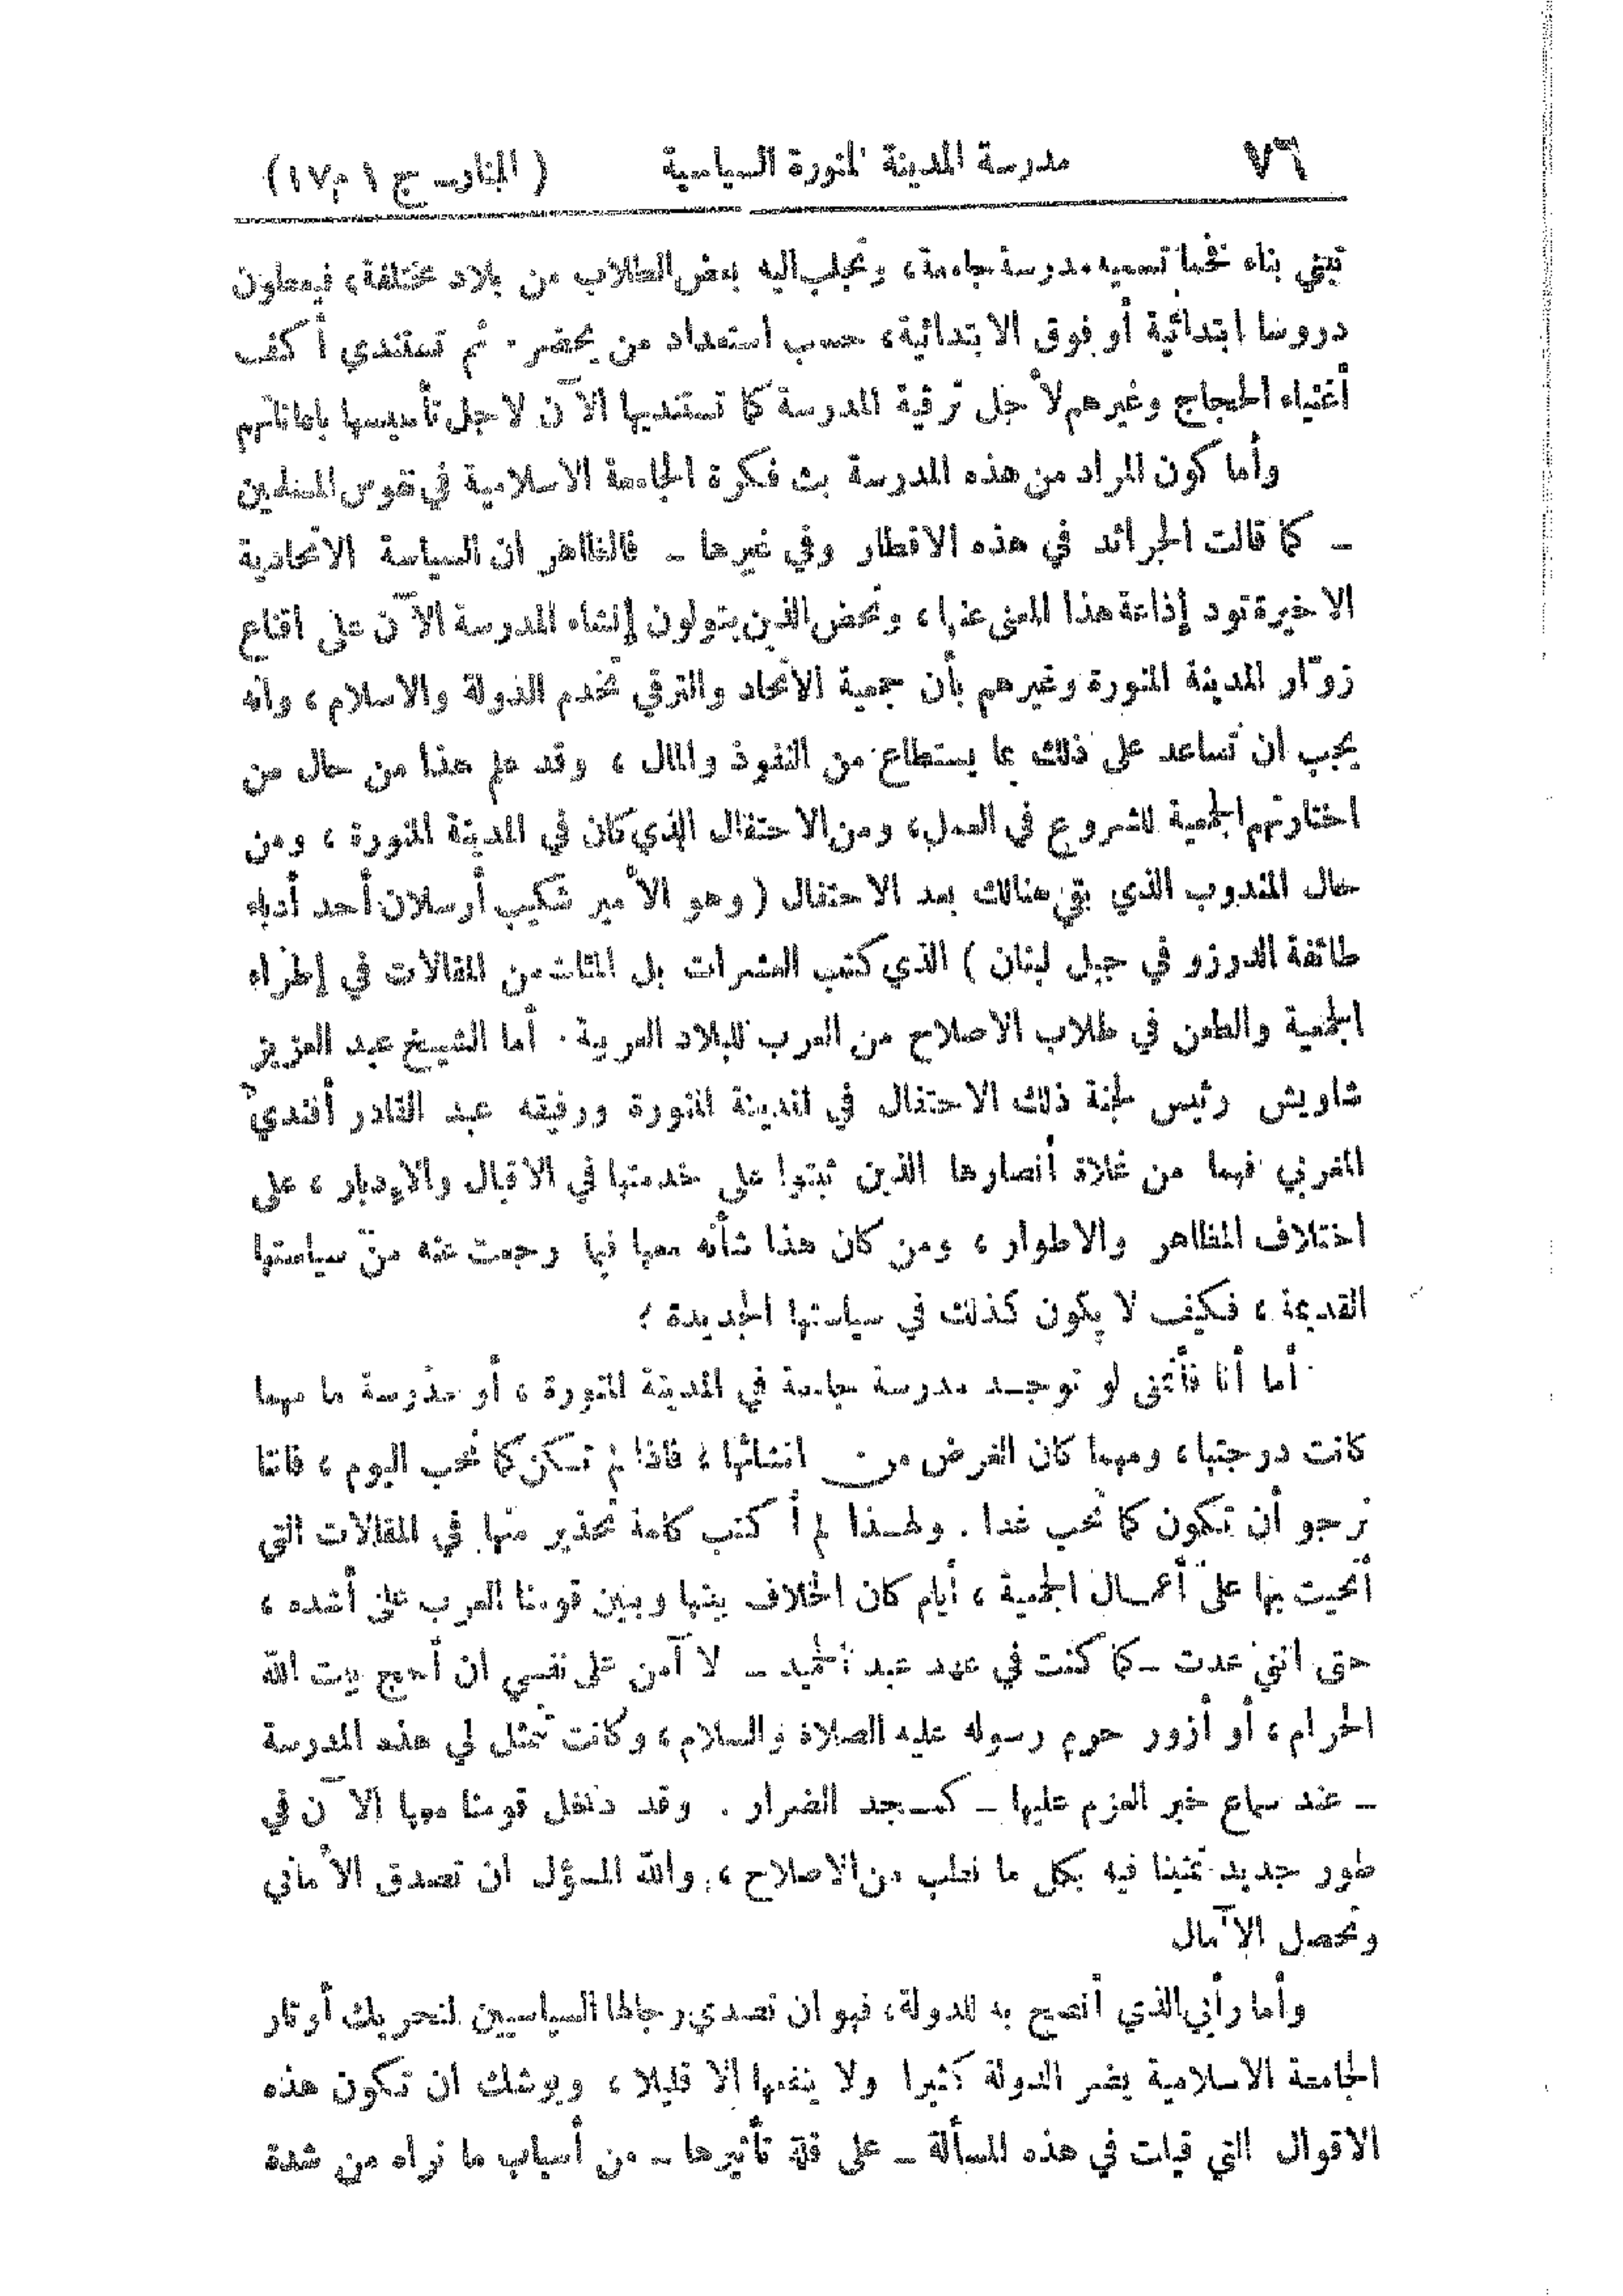 ٧٦ مدرسة المدينة المنورة السياسية ( المنار ـ ج ١ م ١٧ )
تبني بناء فخما تسميه مدرسة جامعة، وتجلب اليه بعض الطلاب من بلاد مختلفة، فيعطون
دروسا ابتدائية أو فوق الابتدائية، حسب استعداد من يحضر. ثم تستندي أكف
أغنياء الحجاج وغيرهم لأجل ترقية المدرسة كما تستنديها الآن لاجل تأسيسها باعاناتهم
وأما كون المراد من هذه المدرسة بث فكرة الجامعة الاسلامية في نفوس المسلمين
ـ كما قالت الجرائد في هذه الاقطار وفي غيرها ـ فالظاهر ان السياسة الاتحادية
الاخيرة تود إذاعة هذا المعنى عنها، وتحض الذين يتولون إنشاء المدرسة الآن على اقناع
زوّار المدينة المنورة وغيرهم بأن جمعية الاتحاد والترقي تخدم الدولة والاسلام، وانه
يجب ان تساعد على ذلك بما يستطاع من النفوذ والمال، وقد علم هذا من حال من
اختارتهم الجمعية للشروع في العمل، ومن الاحتفال الذي كان في المدينة المنورة، ومن
حال المندوب الذي بقي هنالك بعد الاحتفال (وهو الأمير شكيب أرسلان أحد أدباء
طائفة الدروز في جبل لبنان) الذي كتب العشرات بل المئات من المقالات في إطراء
الجمعية والطعن في طلاب الاصلاح من العرب للبلاد العربية. أما الشيخ عبد العزيز
شاويش رئيس لجنة ذلك الاحتفال في المدينة المنورة ورفيقه عبد القادر أفندي
المغربي فهما من غلاة أنصارها الذين ثبتوا على خدمتها في الاقبال والإدبار، على
اختلاف المظاهر والاطوار، ومن كان هذا شأنه معها فيما رجعت عنه من سياستها
القديمة، فكيف لا يكون كذلك في سياستها الجديدة؟
أما أنا فأتمنى لو توجد مدرسة جامعة في المدينة المنورة، أو مدرسة ما مهما
كانت درجتها، ومهما كان الغرض من انشائها، فاذا لم تكن كما نحب اليوم، فاننا
نرجو أن تكون كما نحب غدا. ولهذا لم أكتب كلمة تحذير منها في المقالات التي
أنحيت بها على أعمال الجمعية، أيام كان الخلاف بينها وبين قومنا العرب على أشده،
حتى انني عدت ـ كما كنت في عهد عبد الحميد ـ لا آمن على نفسي ان أحج بيت الله
الحرام، أو أزور حرم رسوله عليه الصلاة والسلام، وكانت تمثل لي هذه المدرسة
ـ عند سماع خبر العزم عليها ـ كمسجد الضرار. وقد دخل قومنا معها الآن في
طور جديد تمنينا فيه بكل ما نطلب من الاصلاح، والله المسؤل ان تصدق الأماني
وتحصل الآمال
وأما رأيي الذي أنصح به للدولة، فهو ان تصدي رجالها السياسيين لتحريك أوتار
الجامعة الاسلامية يضر الدولة كثيرا ولا ينفعها الا قليلا، ويوشك ان تكون هذه
الاقوال التي قيلت في هذه المسألة ـ على قلة تأثيرها ـ من أسباب ما نراه من شدة